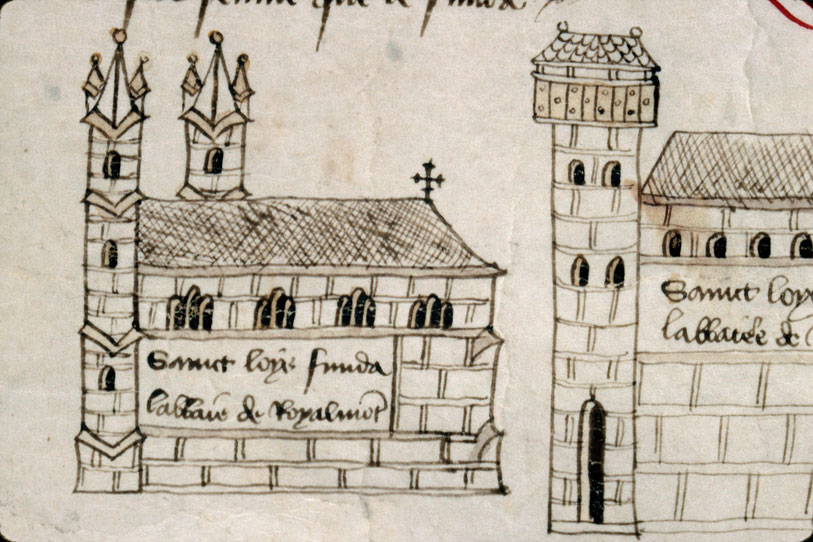 que le funda
Sainct loys funda
labbaie de Royalmõt
Sainct loy
labbaie de